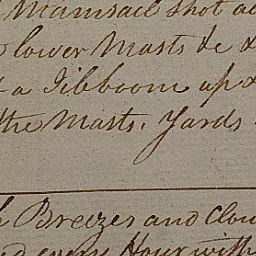 Mainsail shot a
lower Masts &c &
a Jibboom up &
the Masts. Yards
Breezes and Clou
every Hour with